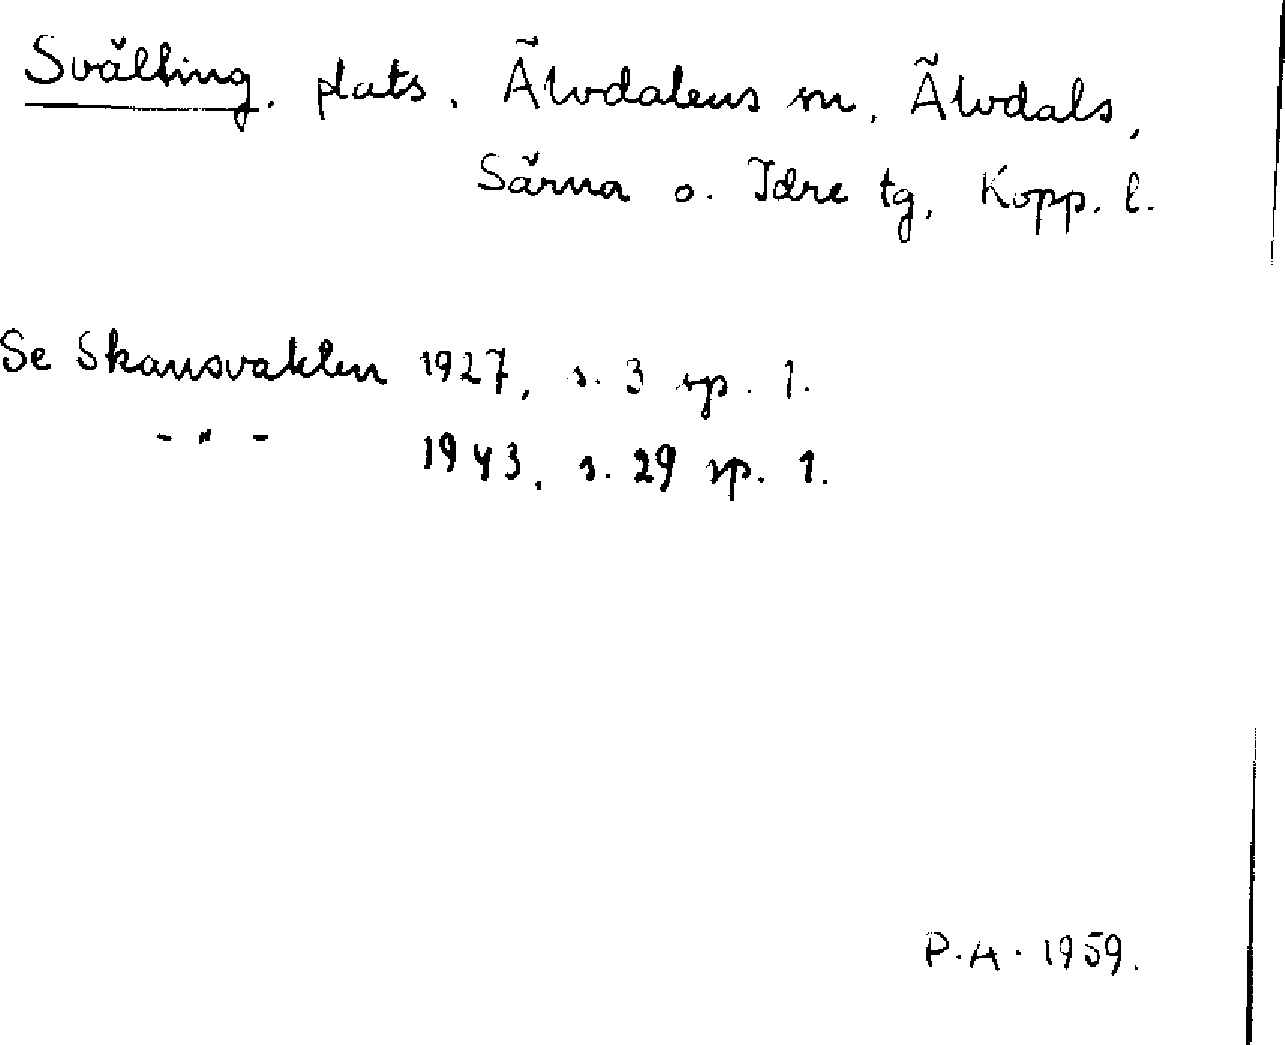 Svälting, plats, Älvdalens sn, Älvdals,
Särna o. Idre tg, Kopp. l.
Se Skansvakten 1927, s. 3 sp. 1.
- " - 1943, s. 29 sp. 1.
P.A. 1959.